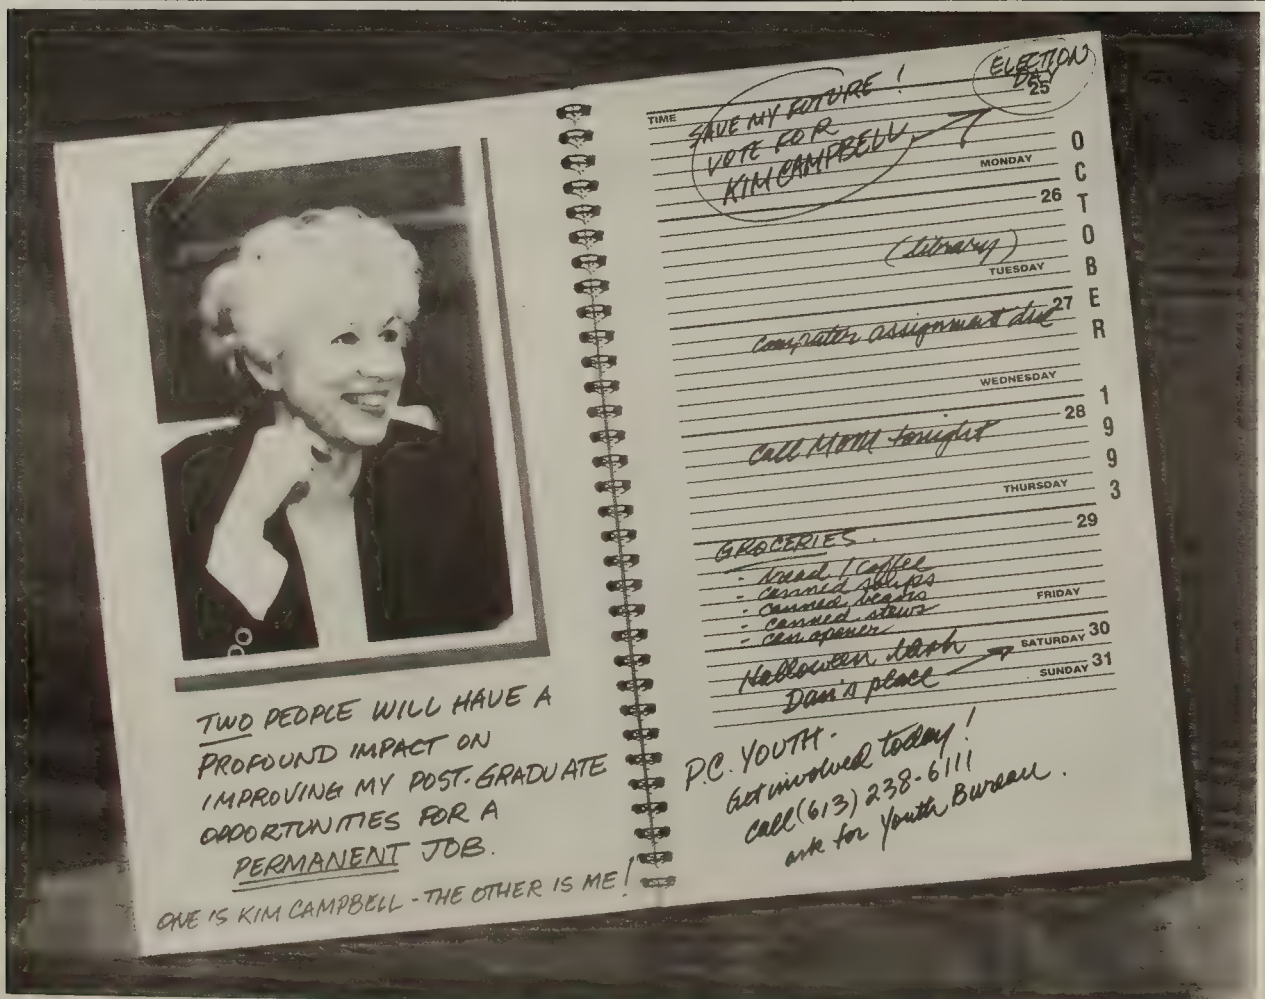 TWO PEOPLE WILL HAVE A
PROFOUND IMPACT ON
IMPROVING MY POST-GRADUATE
OPPORTUNITIES FOR A
PERMANENT JOB.
ONE IS KIM CAMPBELL - THE OTHER IS ME!
TIME
SAVE MY FUTURE!
VOTE FOR
KIM CAMPBELL
ELECTION
DAY
25
MONDAY
26
(library)
TUESDAY
27
computer assignment due
WEDNESDAY
28
call MOM tonight
THURSDAY
29
GROCERIES.
- bread / coffee
- canned soups
- canned beans
- canned stews
- can opener
FRIDAY
Halloween bash
Dan's place
SATURDAY 30
SUNDAY 31
OCTOBER
1993
P.C. YOUTH -
Get involved today!
call (613) 238-6111
ask for Youth Bureau.